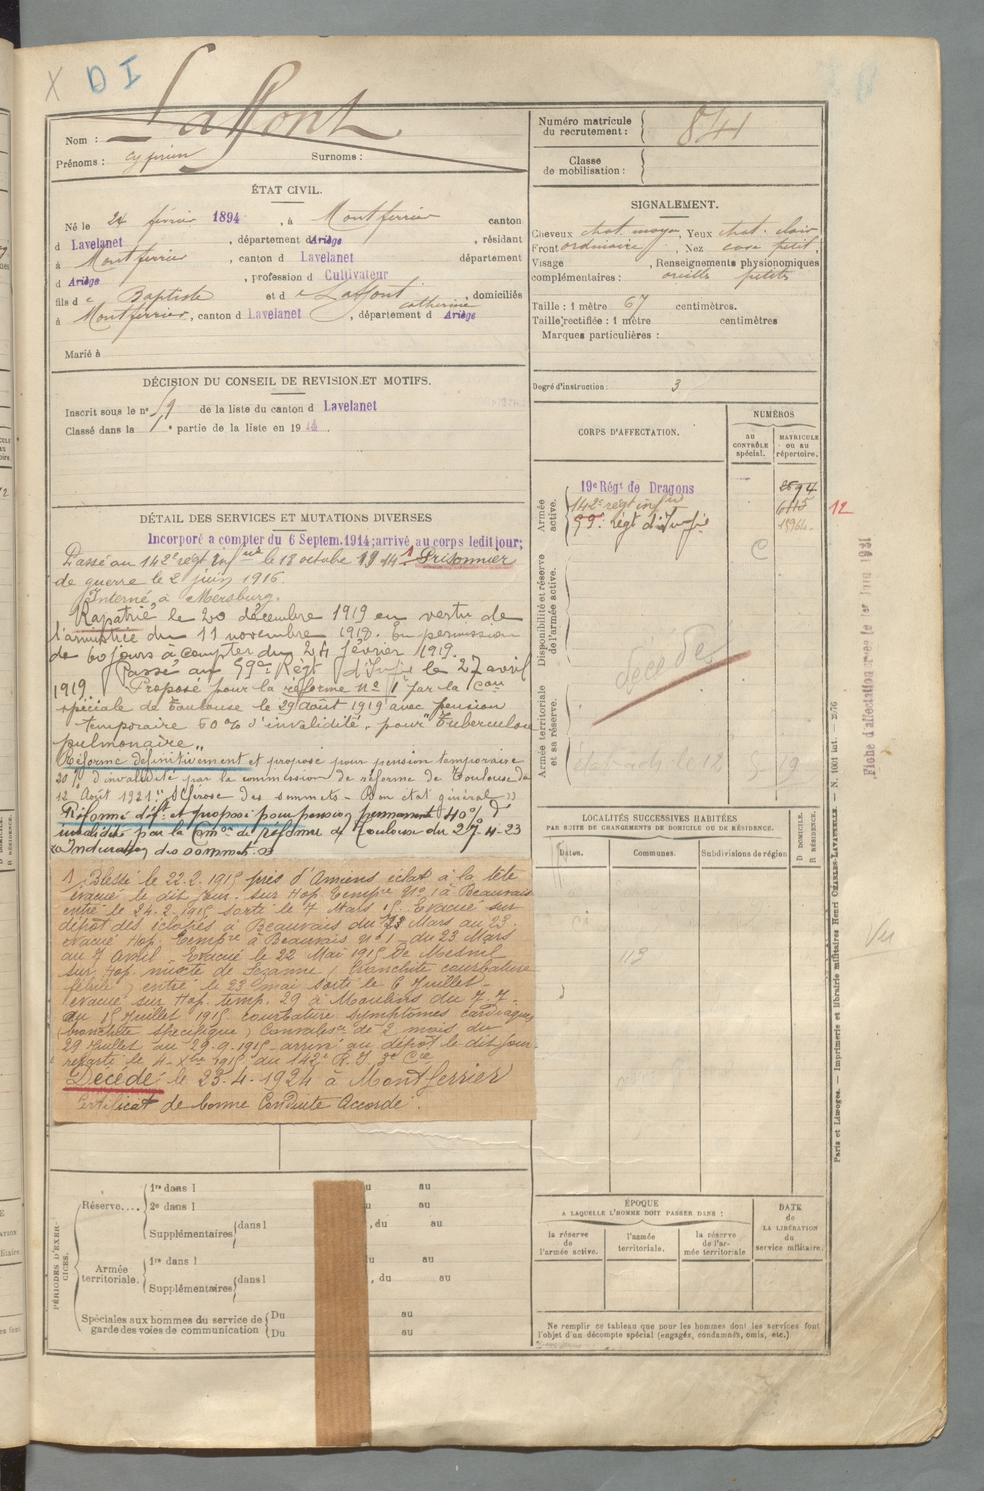 X D I
Nom : Laffont
Prénoms : Cyprien Surnoms :
Numéro matricule du recrutement : 841
Classe de mobilisation :
ÉTAT CIVIL.
Né le 24 février 1894, à Montferrier canton
d Lavelanet, département d Ariège, résidant
à Montferrier, canton d Lavelanet département
d Ariège, profession d Cultivateur
fils d e Baptiste et d e Laffont catherine, domiciliés
à Montferrier, canton d Lavelanet, département d Ariège
Marié à
SIGNALEMENT.
Cheveux chat. moyen, Yeux chat. clair
Front ordinaire, Nez cave petit,
Visage , Renseignements physionomiques
complémentaires : oreille petite
Taille : 1 mètre 67 centimètres.
Taille rectifiée : 1 mètre centimètres
Marques particulières :
Degré d'instruction : 3
DÉCISION DU CONSEIL DE REVISION ET MOTIFS.
Inscrit sous le n° 59 de la liste du canton d Lavelanet
Classé dans la 1e partie de la liste en 1914.
CORPS D'AFFECTATION.
NUMÉROS
AU CONTRÔLE spécial.
MATRICULE ou au répertoire.
Armée active.
19e Régt de Dragons
142e régt infrie
59e Régt d'Infie
12
C
Disponibilité et réserve de l'armée active.
décédé
Armée territoriale et sa réserve.
Fiche d'affectation
DÉTAIL DES SERVICES ET MUTATIONS DIVERSES
Incorporé à compter du 6 Septem. 1914; arrivé au corps ledit jour;
Passé au 142e régt Infrie le 18 octobre 1914. 1 Prisonnier
de guerre le 2 juin 1916.
Interné à Mersburg.
Rapatrié le 20 décembre 1919 en vertu de
l'armistice du 11 novembre 1918. En permission
de 60 jours à compter du 24 février 1919.
Passé au 59e Régt d'Infie le 27 avril
1919. Proposé pour la réforme no 1 par la Con
spéciale de Toulouse le 29 août 1919 avec pension
temporaire 60% d'invalidité, pour Tuberculose
pulmonaire "
Réformé définitivement et proposé pour pension temporaire
20% d'invalidité par la commission de réforme de Toulouse du
12 Août 1921 "Sclérose des sommets - Bon état général"
Réformé déft et proposé pour pension permanente 40% d'
invalidité par la Cmon de réforme de Toulouse du 27-4-23
"Induration des sommets."
1 Blessé le 22.2.1915 près d'Amiens éclat à la tête
évacué le dit jour sur Hop. Tempre No 1 à Beauvais
entré le 24.2.1915 sorti le 7 Mars 15. Evacué sur
dépôt des éclopés à Beauvais du 23 Mars au 23.
évacué Hop. Tempre à Beauvais No 1 du 23 Mars
au 7 Avril. Evacué le 22 Mai 1915 de Mesnil
sur Hop. mixte de Sézanne (bronchite courbature
fébrile) entré le 23 mai sorti le 6 Juillet -
évacué sur Hop. temp. 29 à Moulins du 7.7.
au 15 Juillet 1915 courbature symptômes cardiaques
(bronchite spécifique) Convalesce de 2 mois du
29 Juillet au 29.9.1915 arrivé au dépôt le dit jour
reparti le 4 Xbre 1915 du 142e R.I 3e Cie
Décédé le 23-4-1924 à Montferrier
Certificat de bonne Conduite Accordé.
LOCALITÉS SUCCESSIVES HABITÉES
PAR SUITE DE CHANGEMENTS DE DOMICILE OU DE RÉSIDENCE.
Dates. Communes. Subdivisions de région D DOMICILE. R RÉSIDENCE.
Vu
PÉRIODES D'EXERCICES.
Réserve....
1re dans l u au
2e dans l u au
Supplémentaires dans l , du au
Armée territoriale.
1re dans l u au
Supplémentaires dans l , du au
Spéciales aux hommes du service de garde des voies de communication
Du au
Du au
ÉPOQUE
A LAQUELLE L'HOMME DOIT PASSER DANS :
la réserve de l'armée active.
l'armée territoriale.
la réserve de l'armée territoriale
DATE de LA LIBÉRATION du service militaire.
Ne remplir ce tableau que pour les hommes dont les services font
l'objet d'un décompte spécial (engagés, condamnés, omis, etc.)
Paris et Limoges. — Imprimerie et librairie militaires Henri CHARLES-LAVAUZELLE. — N. 1001 int.